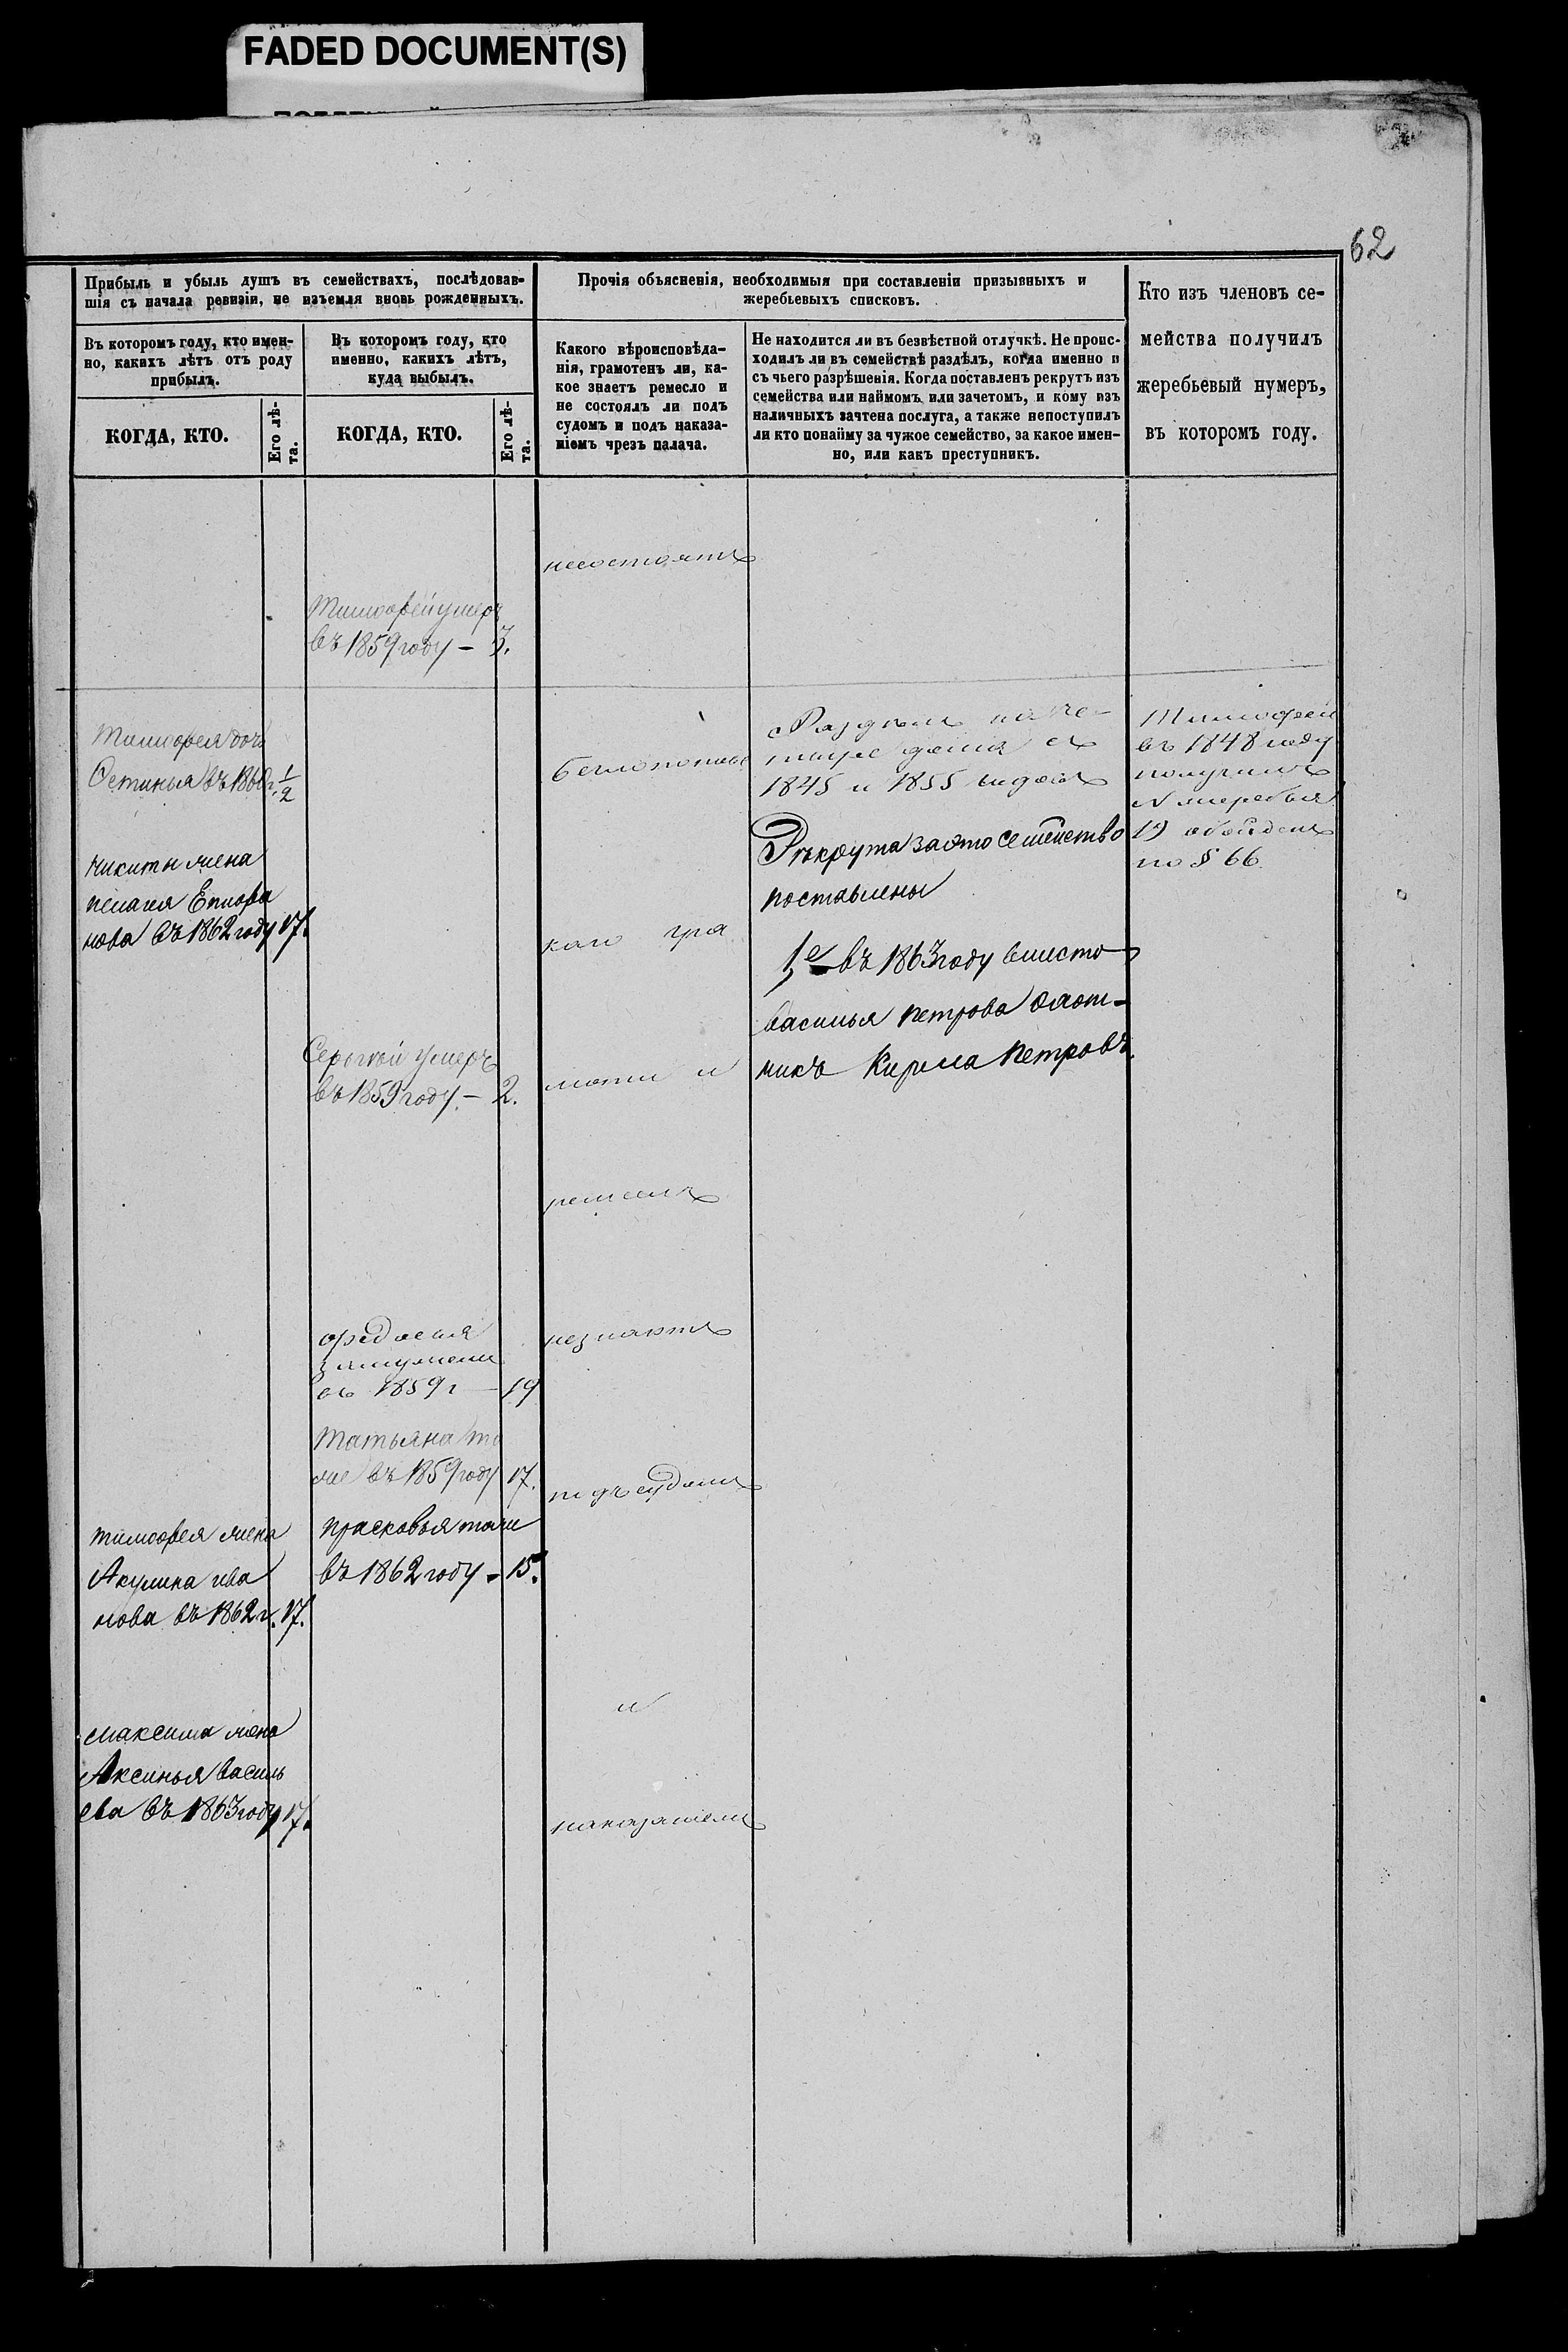 FADED DOCUMENT(S)
62
Прибыль и убыль душъ въ семействахъ, послѣдовав-
шія съ начала ревизіи, не изъемля вновь рожденныхъ.
Въ которомъ году, кто имен-
но, какихъ лѣтъ отъ роду
прибылъ.
КОГДА, КТО.
Его лѣ-
та.
Въ которомъ году, кто
именно, какихъ лѣтъ,
куда выбылъ.
КОГДА, КТО.
Его лѣ-
та.
Прочія объясненія, необходимыя при составленіи призывныхъ и
жеребьевыхъ списковъ.
Какого вѣроисповѣда-
нія, грамотенъ ли, ка-
кое знаетъ ремесло и
не состоялъ ли подъ
судомъ и подъ наказа-
ніемъ чрезъ палача.
Не находится ли въ безвѣстной отлучкѣ. Не проис-
ходилъ ли въ семействѣ раздѣлъ, когда именно и
съ чьего разрѣшенія. Когда поставленъ рекрутъ изъ
семейства или наймомъ или зачетомъ, и кому изъ
наличныхъ зачтена послуга, а также непоступилъ
ли кто понайму за чужое семейство, за какое имен-
но, или какъ преступникъ.
Кто изъ членовъ се-
мейства получилъ
жеребьевый нумеръ,
въ которомъ году.
несостоятъ
Тимофей умеръ
въ 1859 году – 3.
Тимофея дочь
Устинья въ 1860 г. 1/2
никиты жена
пелагея
нова въ 1862 году 17.
тимофея жена
Акулина ива
нова въ 1862 г. 17.
максима жена
Аксинья василь
ева въ 1863 году 17.
Сергей умеръ
въ 1859 году. – 2.
федосья
замужемъ
въ 1859 г – 19
Татьяна то
же въ 1859 году 17.
прасковья тоже
въ 1862 году – 15.
кого гра
моты и
ремесла
незнаютъ
подъ судомъ
и
наказаніемъ
Раздѣлъ на че-
тыре дома съ
1845 и 1855 годовъ
Рѣкрута за это семейство
поставлены
1е въ 1863 году вместо
василья петрова охот-
никъ Кирила Петровъ.
Тимофей
въ 1848 году
получилъ
№ жеребья
19 обойденъ
по § 66